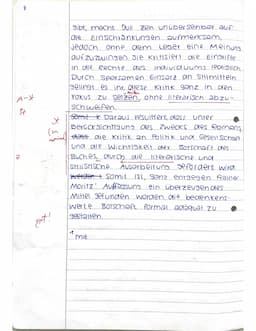 gibt, macht Juli Zeh unübersehbar auf
die Einschränkungen aufmerksam,
jedoch ohne dem Leser eine Meinung
aufzuzwingen. Sie kritisiert die Eingriffe
in die Rechte des Individuums
Durch sparsamen Einsatz an Stilmitteln
gelingt es ihr, diese Kritik ganz in den
Fokus zu setzen, ohne literarisch abzu-
schweifen.
Somit Daraus resultiert, dass unter
Berücksichtigung des Zwecks des Romans,
die Kritik an Politik und Gesellschaft
und die Wichtigkeit der Botschaft des
Buches, durch die literarische und
stilistische Ausarbeitung gefördert wird
Somit ist, ganz entgegen Rainer
Moritz' Auffassung ein überzeugendes
Mittel gefunden worden die bedenkens-
werte Botschaft formal adäquat zu
gestalten.
mit